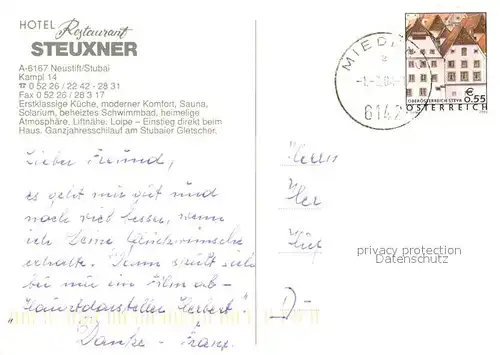 HOTEL Restaurant
STEUXNER
A-6167 Neustift/Stubai
Kampl 14
☎ 0 52 26 / 22 42 - 28 31
Fax 0 52 26 / 28 3 17
Erstklassige Küche, moderner Komfort, Sauna,
Solarium, beheiztes Schwimmbad, heimelige
Atmosphäre. Liftnähe. Loipe – Einstieg direkt beim
Haus. Ganzjahresschilauf am Stubaier Gletscher.
Lieber Freund,
es geht mir gut und
noch viel besser, wenn
ich Deine Glückwünsche
erhalte. Dann spult sich
bei mir ein Film ab -
"Hauptdarsteller Herbert".
Danke - Franz
MIED
6142
€ 0.55
OBERÖSTERREICH STEYR
ÖSTERREICH
Herrn
D-
privacy protection
Datenschutz